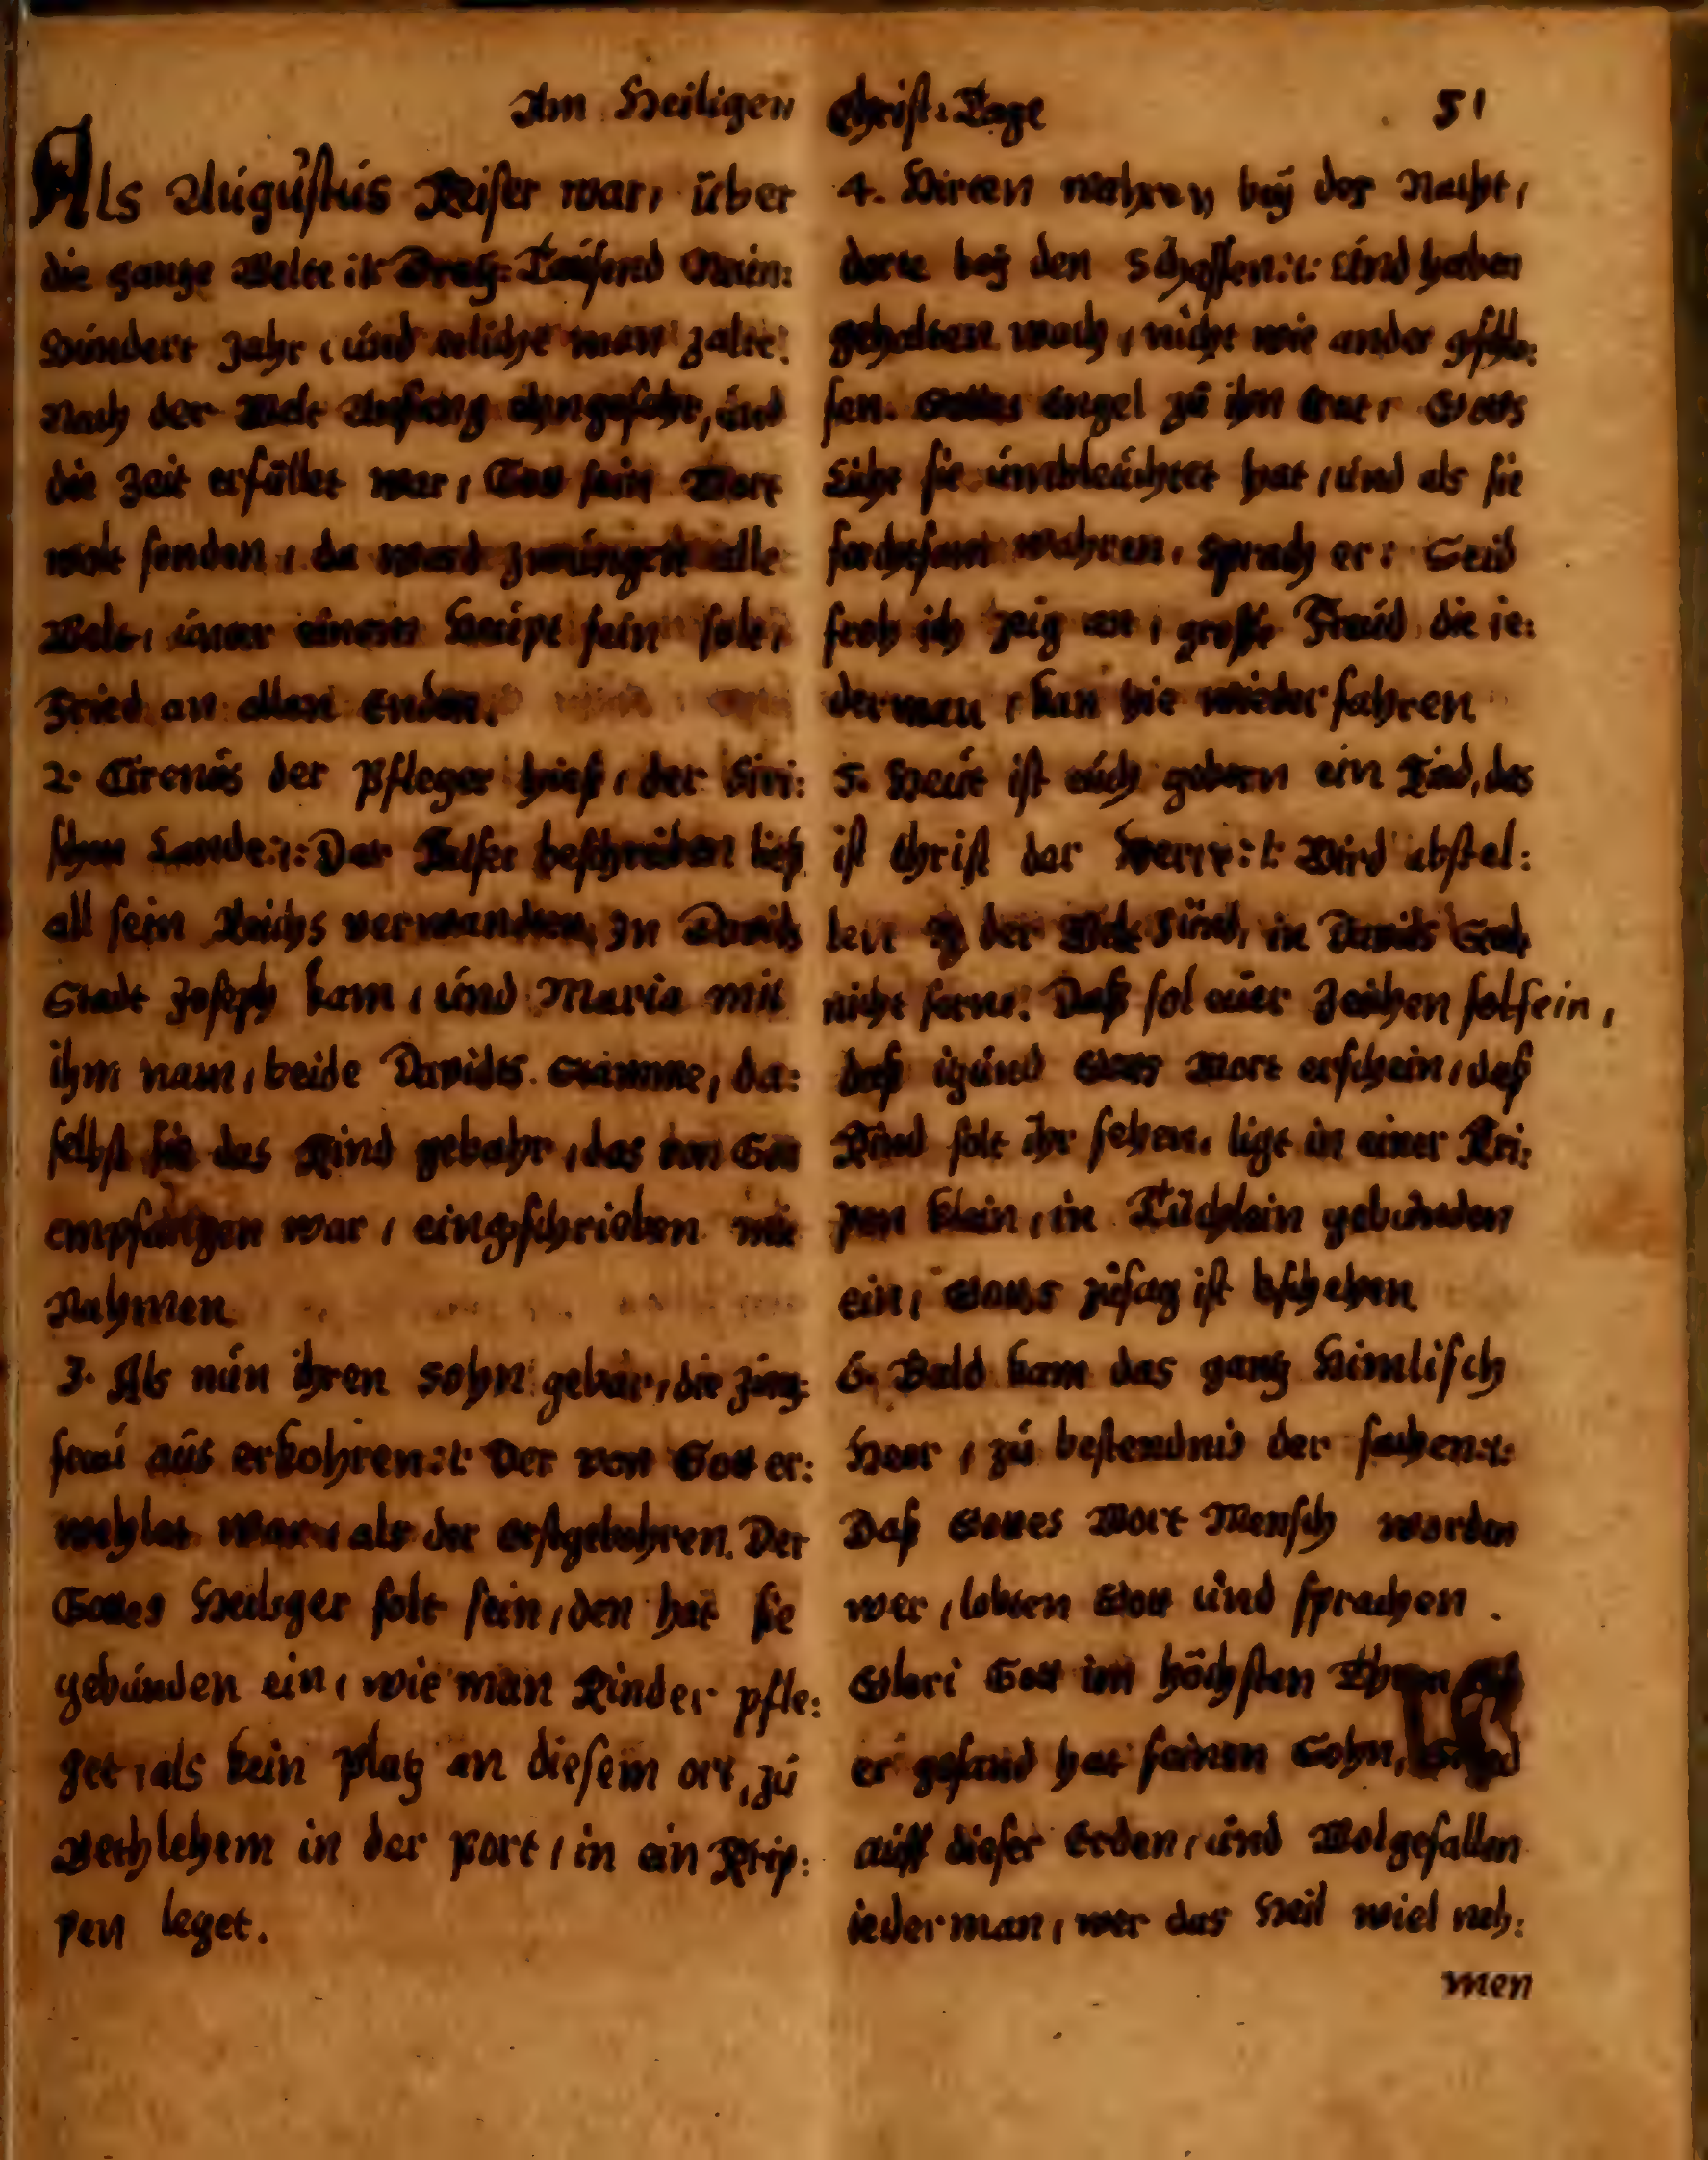 Am Heiligen Christ: Tage 51
Als Augustus Keiser war, über
die gantze Welte :/: Drey: Tausend Neün:
Hundert Jahr, und etliche man zalte:
Nach der Welt Anfang ohngefehr, und
die Zeit erfüllet war, Gott sein Wort
wolt senden, da ward zwungen alle
Welt, unter einem Haüpt sein solt,
Fried an allen Enden.
2. Cirenüs der Pfleger hieß, der Siri:
schen Lande :/: Der Keiser beschreiben ließ
all sein Reichs verwandten, In Davids
Stadt Joseph kam, und Maria mit
ihm nam, beide Davides Stamme, da:
selbst sie das Kind gebahr, das von Gott
empfangen war, eingeschrieben mit
Nahmen.
3. Als nun ihren sohn gebar, die Jung:
frau aus erkohren :/: Der von Gott er:
wehlet war, als der erstgebohren. Der
Gottes Heiliger solt sein, den hat sie
gebunden ein, wie man Kinder pfle:
get, als kein platz an diesem ort, zu
Bethlehem in der port, in ein Krip:
pen leget.
4. Hirten wahren bey der Nacht,
dorte bey den Schaffen :/: und haben
gehalten wach, nicht wie ander gschlo:
fen. Gottes Engel zu ihn trat, Gotts
Licht sie umbleuchtet hat, und als sie
forchtsam wahren, sprach er: Seid
froh ich zeig an, große Freud die ie:
derman, kan hie wiederfahren
5. Heut ist euch geborn ein Kind, das
ist Christ der Herre :/: Wird abstel:
len der Welt Sünd, in Davids Stadt
nicht ferne: Daß sol euer Zeichen solsein,
daß itzund Gotts Wort erschein, daß
Kind solt ihr sehen, ligt in einer Kri:
pen klein, in Tüchlein gebunden
ein, Gottes zusag ist bschehen.
6. Bald kam das gantz Himlisch
Heer, zu bestendnis der sachen :/:
Daß Gottes Wort Mensch worden
wer, lobten Gott und sprachen.
Glori Gott im höchsten Thron
er gesand hat seinen Sohn,
auff dieser Erden, und Wolgefallen
iederman, wer das Heil wiel neh:
men